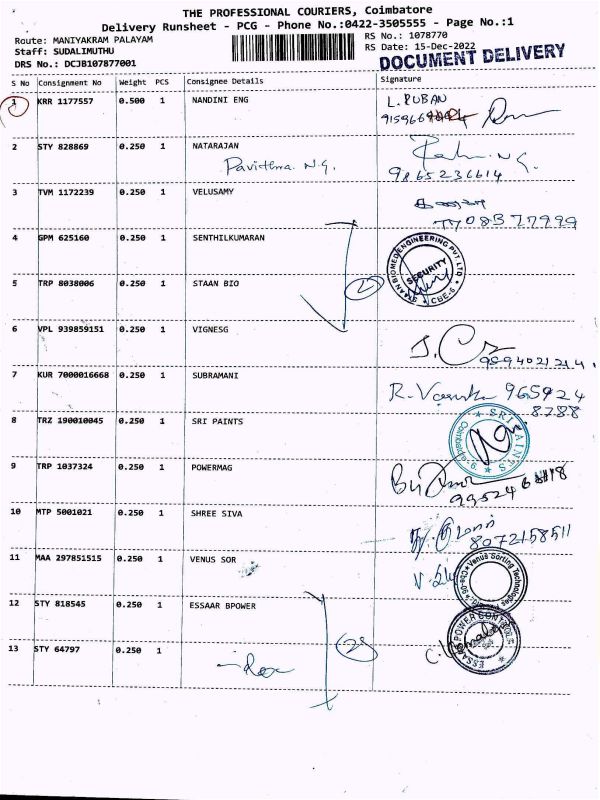 THE PROFESSIONAL COURIERS, Coimbatore
Delivery Runsheet - PCG - Phone No.:0422-3505555 - Page No.:1
Route: MANIYAKRAM PALAYAM
Staff: SUDALIMUTHU
DRS No.: DCJB107877001
RS No.: 1078770
RS Date: 15-Dec-2022
DOCUMENT DELIVERY
S No Consignment No Weight PCS Consignee Details Signature
1 KRR 1177557 0.500 1 NANDINI ENG L. RUBAN
2 STY 828869 0.250 1 NATARAJAN
Pavithra N.G. 9865236614
3 TVM 1172239 0.250 1 VELUSAMY
4 GPM 625160 0.250 1 SENTHILKUMARAN
STAAN BIOMED ENGINEERING PVT. LTD SECURITY CBE-6
5 TRP 8038006 0.250 1 STAAN BIO
6 VPL 939859151 0.250 1 VIGNESG
9894021214
7 KUR 7000016668 0.250 1 SUBRAMANI 965924
8788
8 TRZ 190010045 0.250 1 SRI PAINTS
SRI PAINTS Coimbatore-6
9 TRP 1037324 0.250 1 POWERMAG
10 MTP 5001021 0.250 1 SHREE SIVA
8072158511
11 MAA 297851515 0.250 1 VENUS SOR
Venus Sorting Technologies
12 STY 818545 0.250 1 ESSAAR BPOWER
13 STY 64797 0.250 1